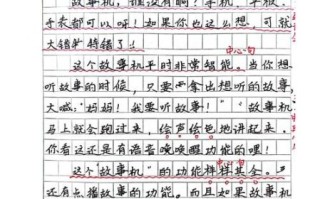 故事机，谁没有啊？手机、平板、
手表都可以呀！如果你也这么想，可就
大错特错了！
中心句
这个故事机平时非常智能。当你想
听故事的时候，只要拿出想听的故事，
大喊“妈妈！我要听故事！”故事机
马上就会跑过来，绘声绘色地讲起来，
你看这还是有语音唤醒功能的哩！
中心句
这个“故事机”的功能样样具全。
还有点播故事的功能。而且如果故事机